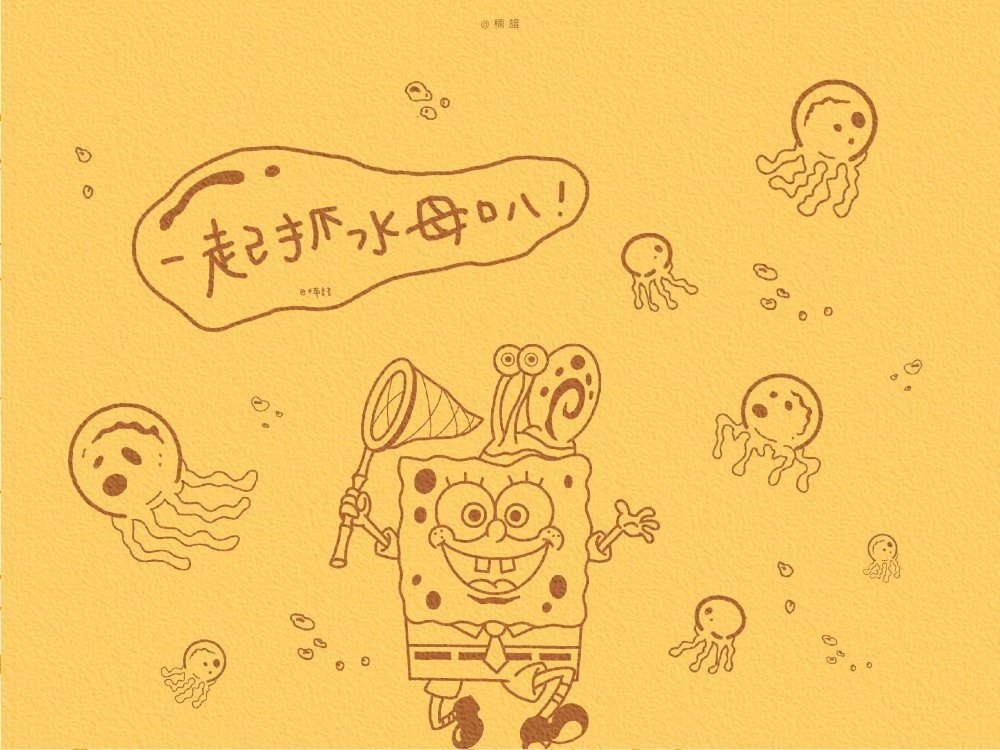 @楠鍇
一起抓水母叭！
@楠鍇